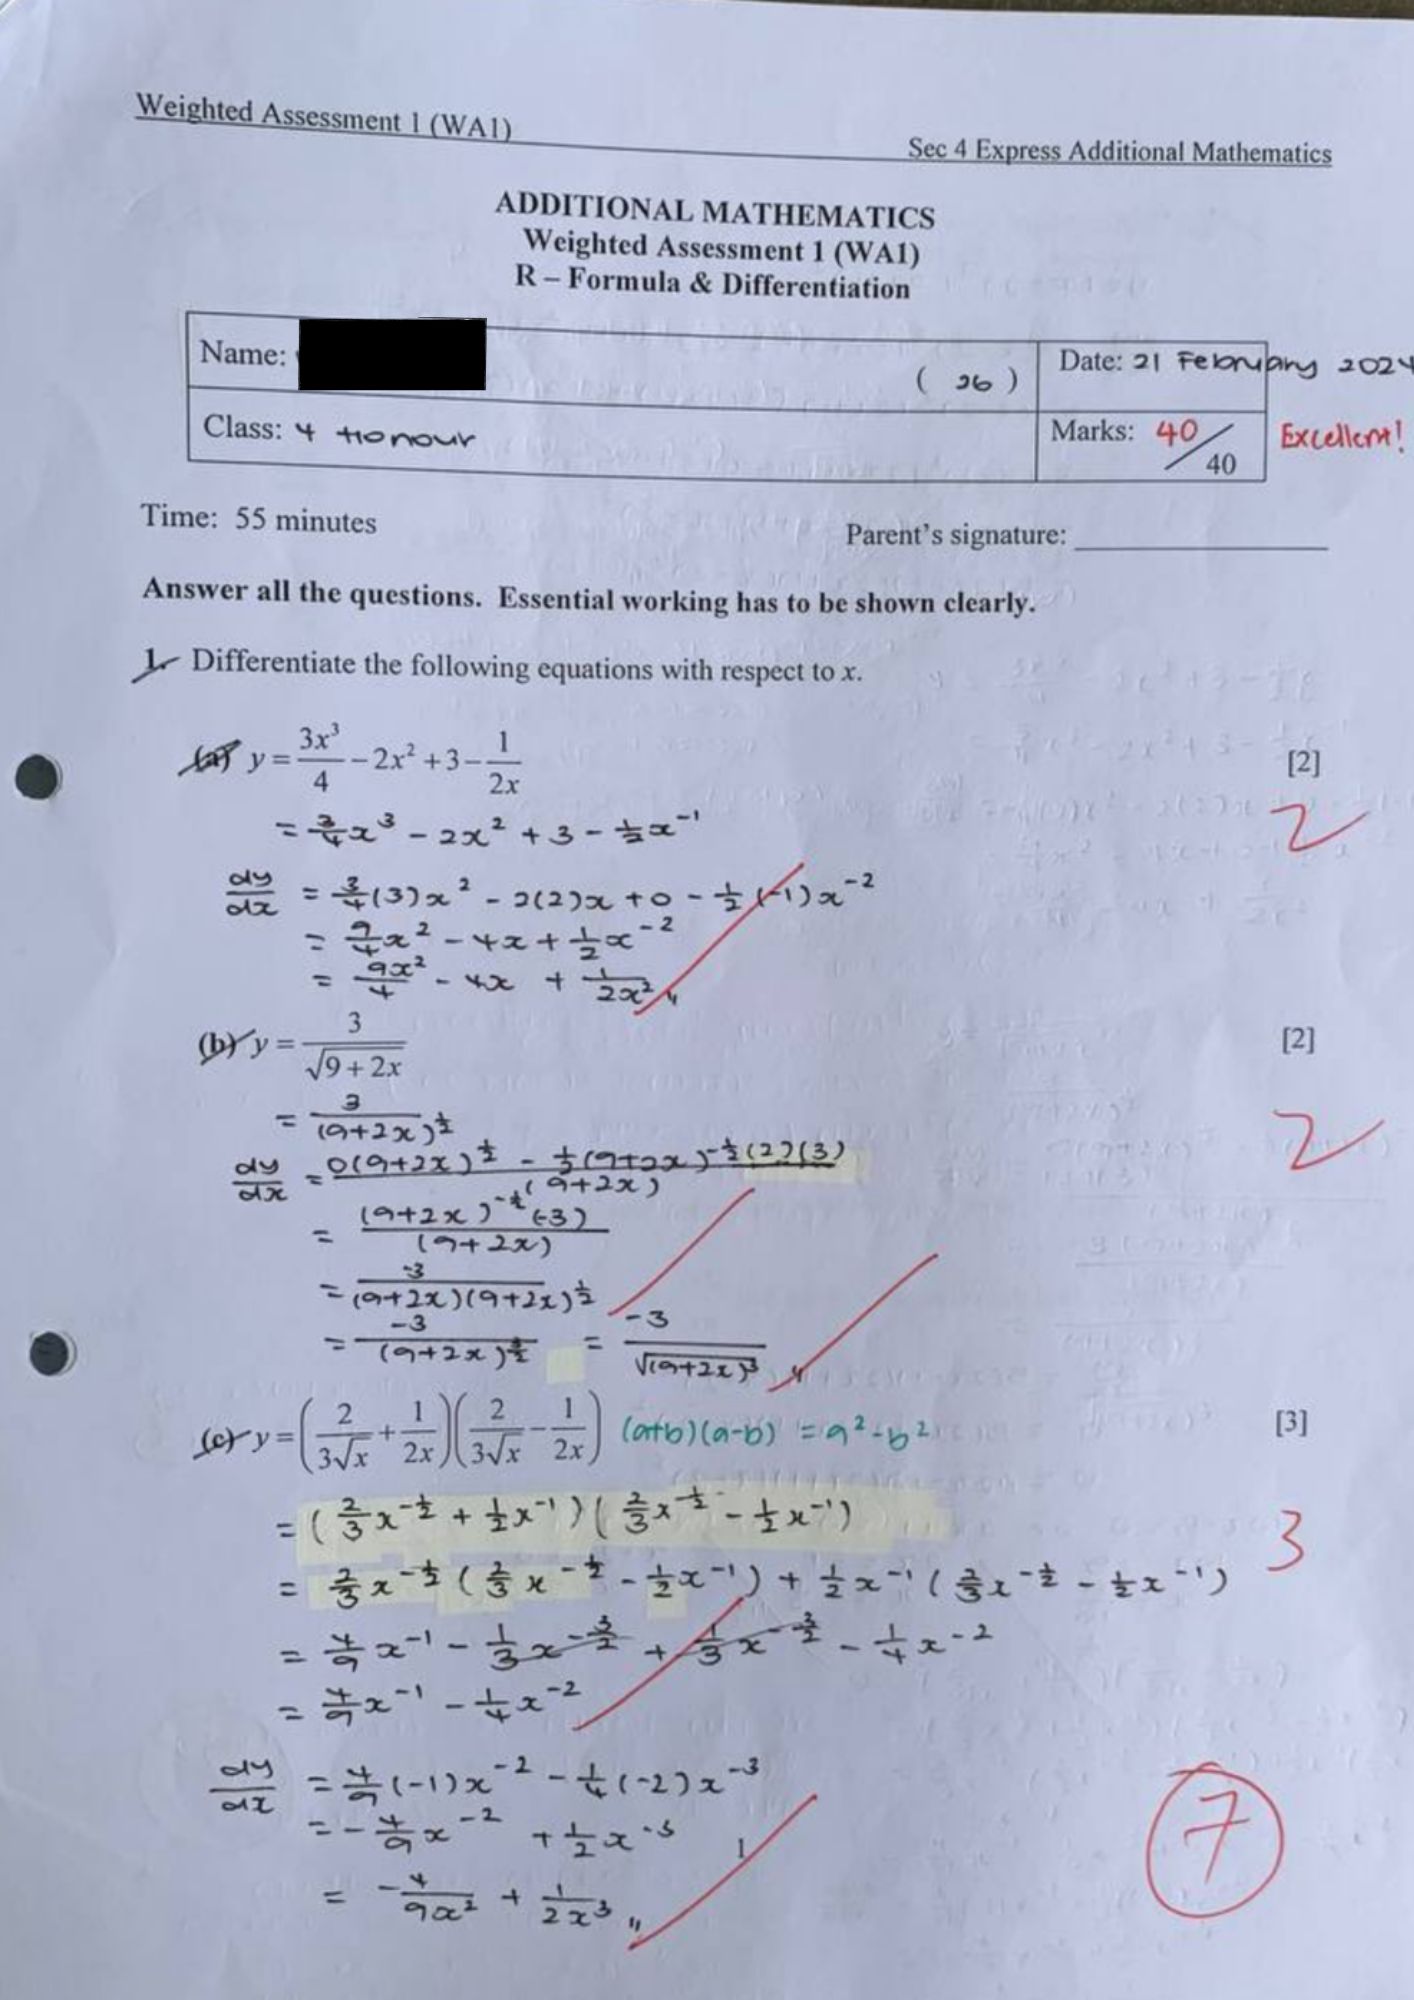 Weighted Assessment 1 (WA1)
Sec 4 Express Additional Mathematics
ADDITIONAL MATHEMATICS
Weighted Assessment 1 (WA1)
R – Formula & Differentiation
Name: ( 26 ) Date: 21 February 2024
Class: 4 Honour Marks: 40/40 Excellent!
Time: 55 minutes Parent's signature:
Answer all the questions. Essential working has to be shown clearly.
1. Differentiate the following equations with respect to x.
(a) y = 3x³/4 − 2x² + 3 − 1/2x [2]
= 3/4 x³ − 2x² + 3 − 1/2 x⁻¹ 2
dy/dx = 3/4 (3)x² − 2(2)x + 0 − 1/2 (−1)x⁻²
= 9/4 x² − 4x + 1/2 x⁻²
= 9x²/4 − 4x + 1/2x²
(b) y = 3/√(9 + 2x) [2]
= 3/(9+2x)^½ 2
dy/dx = 0(9+2x)^½ − ½(9+2x)^−½ (2)(3) / (9+2x)
= (9+2x)^−½ (−3) / (9+2x)
= −3/(9+2x)(9+2x)^½
= −3/(9+2x)^3/2 = −3/√(9+2x)³
(c) y = (2/3√x + 1/2x)(2/3√x − 1/2x) (a+b)(a-b) = a²-b² [3]
= (2/3 x^−½ + ½x⁻¹)(2/3 x^−½ − ½x⁻¹) 3
= 2/3 x^−½ (2/3 x^−½ − ½x⁻¹) + ½x⁻¹ (2/3 x^−½ − ½x⁻¹)
= 4/9 x⁻¹ − 1/3 x^−3/2 + 1/3 x^−3/2 − 1/4 x⁻²
= 4/9 x⁻¹ − 1/4 x⁻²
dy/dx = 4/9 (−1)x⁻² − 1/4 (−2)x⁻³
= −4/9 x⁻² + ½x⁻³ 1
= −4/9x² + 1/2x³
7